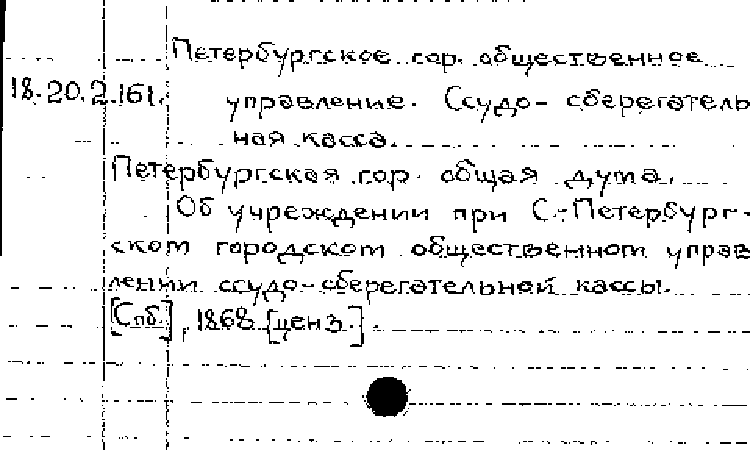 Петербургское гор. общественное
18.20.2.161. управление. Ссудо-сберегатель
ная касса.
Петербургская гор. общая дума.
Об учреждении при С.-Петербург-
ском городском общественном управ
лении ссудо-сберегательной кассы.
[Спб.], 1868 [ценз.].